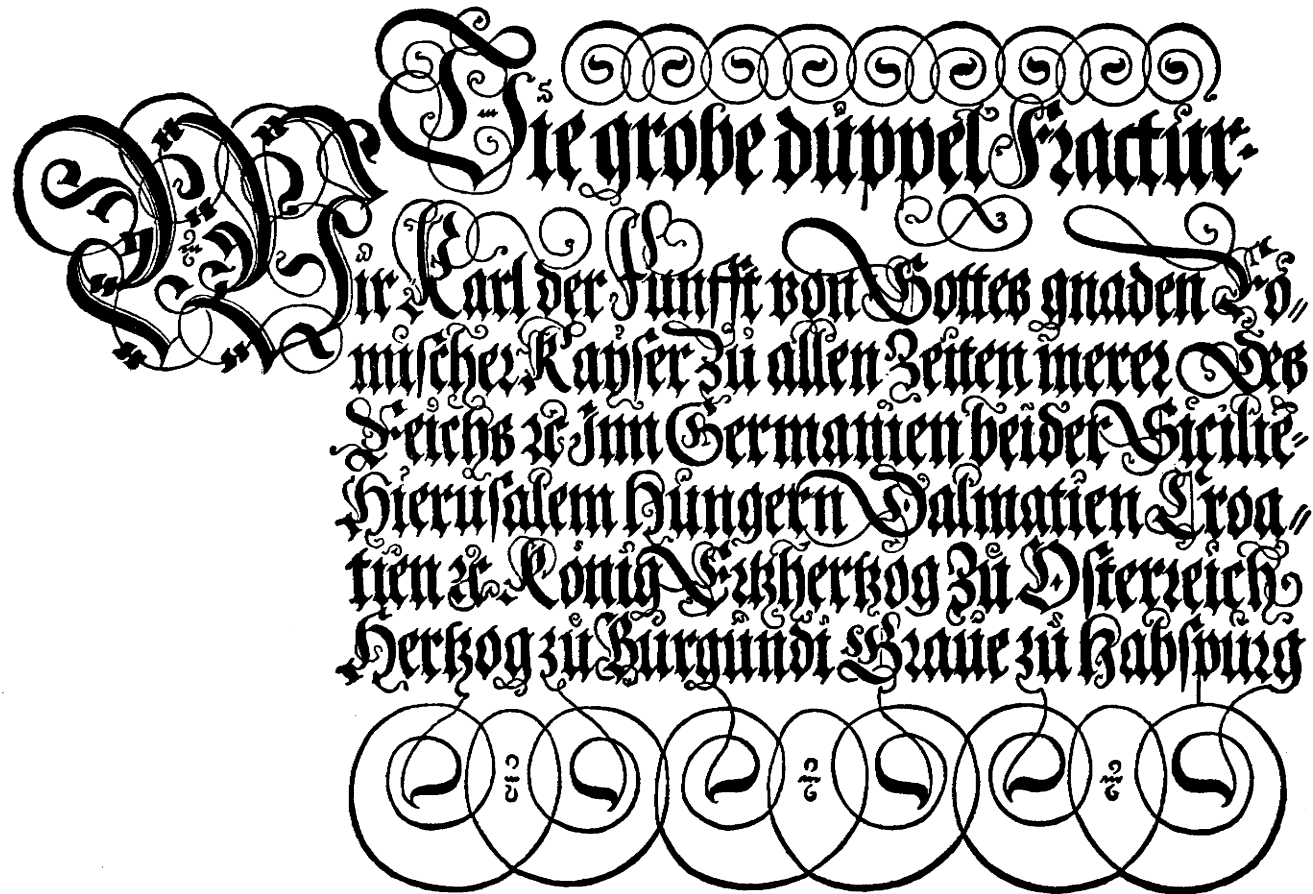 Die grobe düppel Fractur-
Wir Karl der Funfft von Gottes gnaden Rö„
mischer Kayser Zů allen Zeiten merer Des
Reichs ꝛc Inn Germanien beider Sicilië-
Hierusalem Hungern Dalmatien Croa„
tien ꝛc König Ertzhertzog Zů Osterreich
Hertzog zů Burgundi Graue zů Habspurg